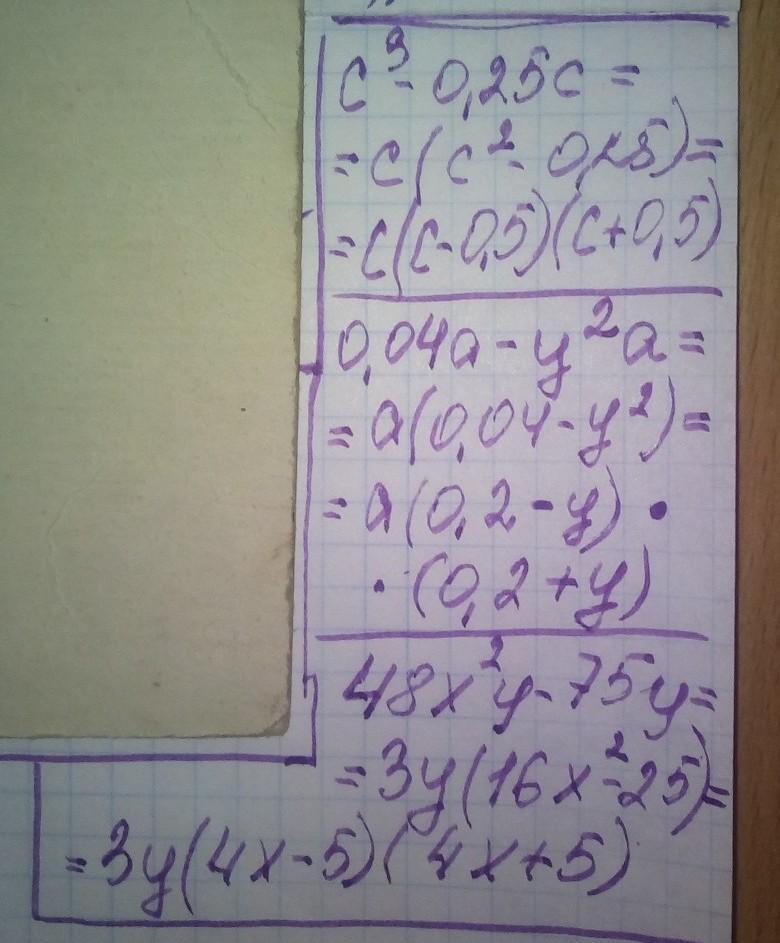 c³ - 0,25c =
= c(c² - 0,25) =
= c(c - 0,5)(c + 0,5)
0,04a - y²a =
= a(0,04 - y²) =
= a(0,2 - y) •
• (0,2 + y)
48x²y - 75y =
= 3y(16x² - 25) =
= 3y(4x - 5)(4x + 5)